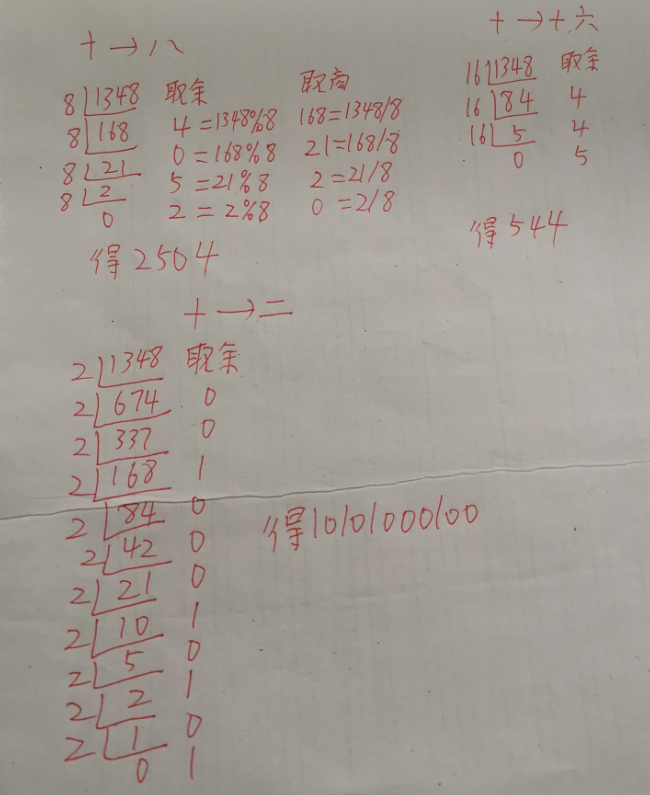 十→八
8 1348 取余 取商
8 168 4=1348%8 168=1348/8
8 21 0=168%8 21=168/8
8 2 5=21%8 2=21/8
0 2=2%8 0=2/8
得2504
十→十六
16 1348 取余
16 84 4
16 5 4
0 5
得544
十→二
2 1348 取余
2 674 0
2 337 0
2 168 1
2 84 0
2 42 0
2 21 0
2 10 1
2 5 0
2 2 1
2 1 0
0 1
得10101000100